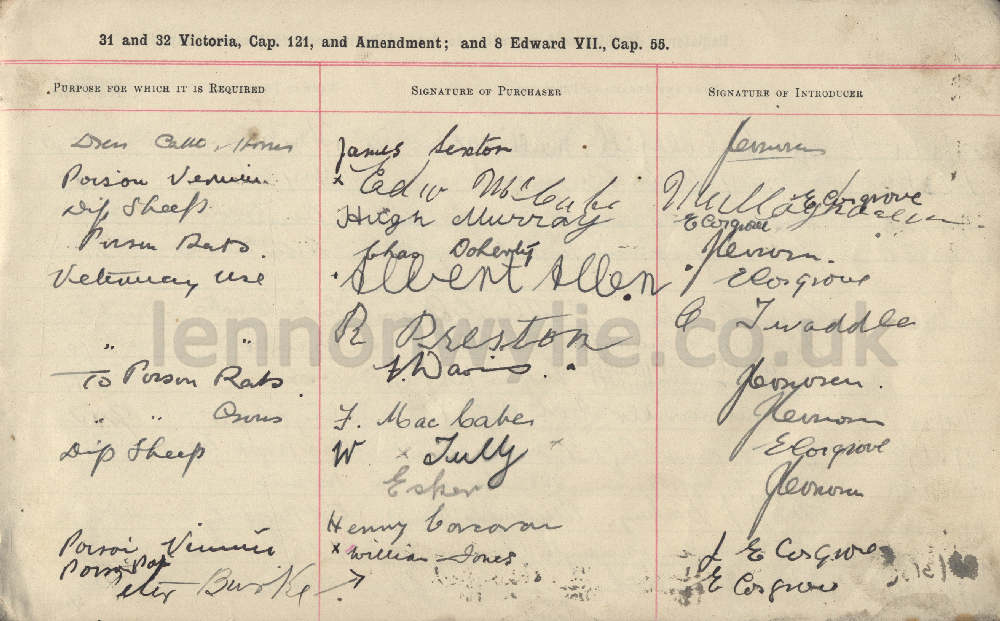 31 and 32 Victoria, Cap. 121, and Amendment; and 8 Edward VII., Cap. 55.
PURPOSE FOR WHICH IT IS REQUIRED SIGNATURE OF PURCHASER SIGNATURE OF INTRODUCER
James Sexton
Poison Vermin x Edw McCabe E Cosgrove
Dip Sheep Hugh Murray E Cosgrove
Poison Rats Chas Doherty
Veterinary use Albert Allen E Cosgrove
" " R Preston C Twaddle
lennonwylie.co.uk
To Poison Rats J. Davis
" " F. MacCabe
Dip Sheep W x Tully x E Cosgrove
Esker
Henry Corcoran
Poison Vermin x William Jones J E Cosgrove
Poison Peter Burke E Cosgrove